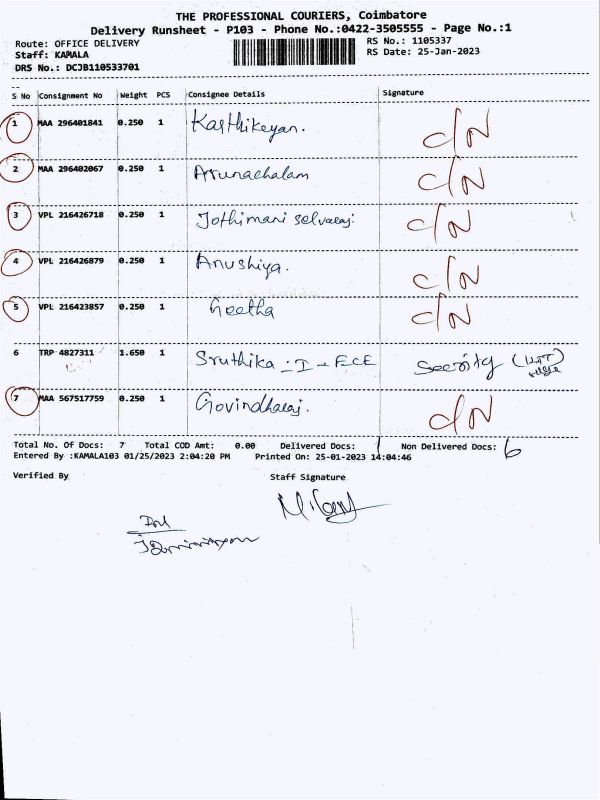 THE PROFESSIONAL COURIERS, Coimbatore
Delivery Runsheet - P103 - Phone No.:0422-3505555 - Page No.:1
Route: OFFICE DELIVERY RS No.: 1105337
Staff: KAMALA RS Date: 25-Jan-2023
DRS No.: DCJB110533701
S No Consignment No Weight PCS Consignee Details Signature
1 MAA 296401841 0.250 1 Karthikeyan. C/N
2 MAA 296402067 0.250 1 Arunachalam C/N
3 VPL 216426718 0.250 1 Jothimani selvaraj. C/N
4 VPL 216426879 0.250 1 Anushiya. C/N
5 VPL 216423857 0.250 1 Geetha C/N
6 TRP 4827311 1.650 1 Sruthika - I - ECE
7 MAA 567517759 0.250 1 Govindharaj. C/N
Total No. Of Docs: 7 Total COD Amt: 0.00 Delivered Docs: 1 Non Delivered Docs: 6
Entered By :KAMALA103 01/25/2023 2:04:20 PM Printed On: 25-01-2023 14:04:46
Verified By Staff Signature